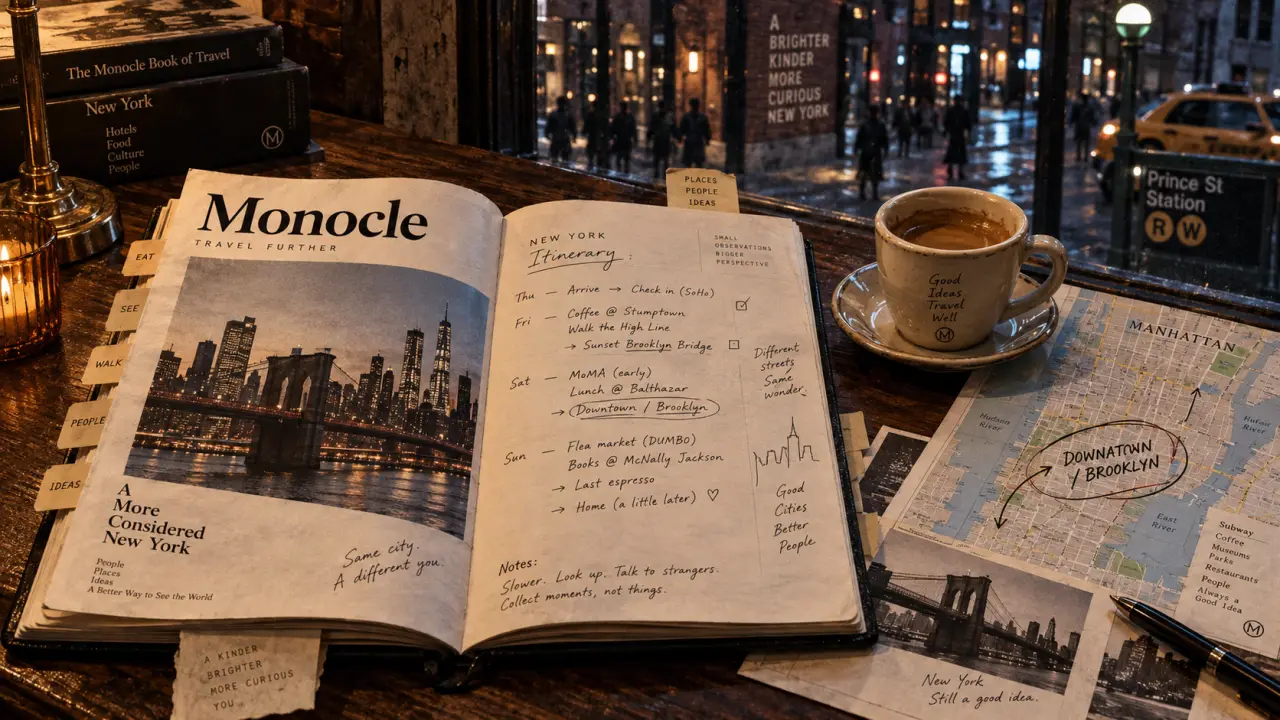 The Monocle Book of Travel
New York
Hotels
Food
Culture
People
M
A
BRIGHTER
KINDER
MORE
CURIOUS
NEW YORK
Prince St
Station
R W
EAT
SEE
WALK
PEOPLE
IDEAS
Monocle
TRAVEL FURTHER
A
More
Considered
New York
People
Places
Ideas
A Better Way to See the World
Same city.
A different you.
A KINDER
BRIGHTER
MORE CURIOUS
YOU
PLACES
PEOPLE
IDEAS
NEW YORK
Itinerary :
SMALL
OBSERVATIONS
BIGGER
PERSPECTIVE
Thu — Arrive → Check in (SoHo)
Fri — Coffee @ Stumptown
Walk the High Line
→ Sunset Brooklyn Bridge
Sat — MoMA (early)
Lunch @ Balthazar
→ Downtown / Brooklyn
Sun — Flea market (DUMBO)
Books @ McNally Jackson
→ Last espresso
→ Home (a little later) ♡
Different
streets
Same
wonder.
Good
Cities
Better
People
Notes:
Slower. Look up. Talk to strangers.
Collect moments, not things.
Good
Ideas
Travel
Well
M
MANHATTAN
Hudson
River
DOWNATOWN
/ BROOKLYN
East
River
River
Subway
Coffee
Museums
Parks
Restaurants
People
Always a
Good Idea
M
New York
Still a good idea.